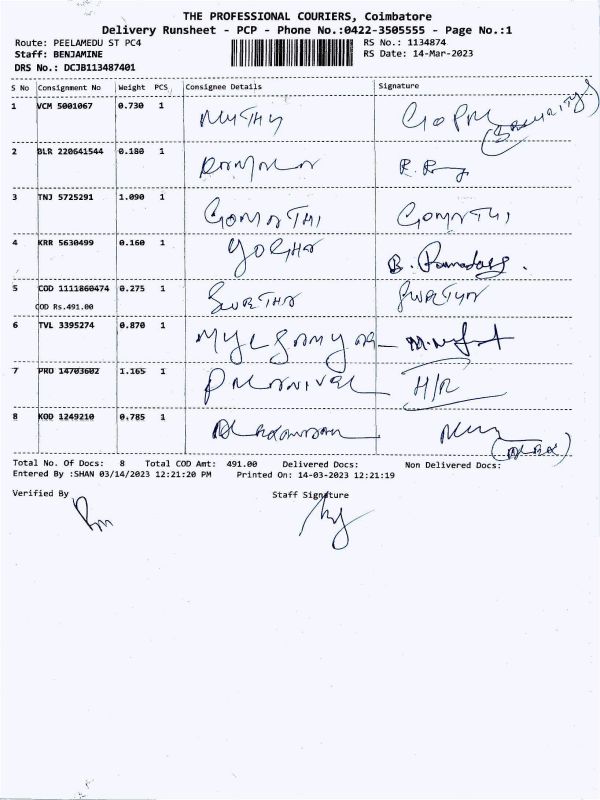 THE PROFESSIONAL COURIERS, Coimbatore
Delivery Runsheet - PCP - Phone No.:0422-3505555 - Page No.:1
Route: PEELAMEDU ST PC4 RS No.: 1134874
Staff: BENJAMINE RS Date: 14-Mar-2023
DRS No.: DCJB113487401
S No Consignment No Weight PCS Consignee Details Signature
1 VCM 5001067 0.730 1 MUTHU GOPAL (SECURITY)
2 BLR 220641544 0.180 1
3 TNJ 5725291 1.090 1 GOMATHI GOMATHI
4 KRR 5630499 0.160 1 YOGHA B.
5 COD 1111860474 0.275 1 SWETHA SWETHA
COD Rs.491.00
6 TVL 3395274 0.870 1
7 PRO 14703602 1.165 1 PALANIVEL H/R
8 KOD 1249210 0.785 1
Total No. Of Docs: 8 Total COD Amt: 491.00 Delivered Docs: Non Delivered Docs:
Entered By :SHAN 03/14/2023 12:21:20 PM Printed On: 14-03-2023 12:21:19
Verified By Staff Signature